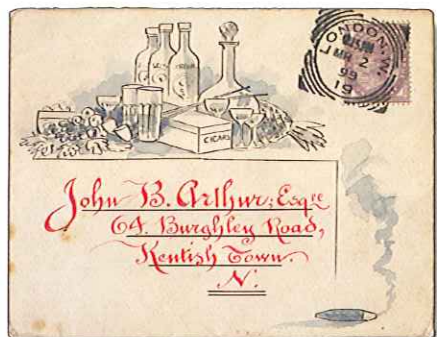 LONDON. N.W.
MR 2
99
19
CIGARS
John B. Arthur; Esqre
64. Burghley Road,
Kentish Town.
N.